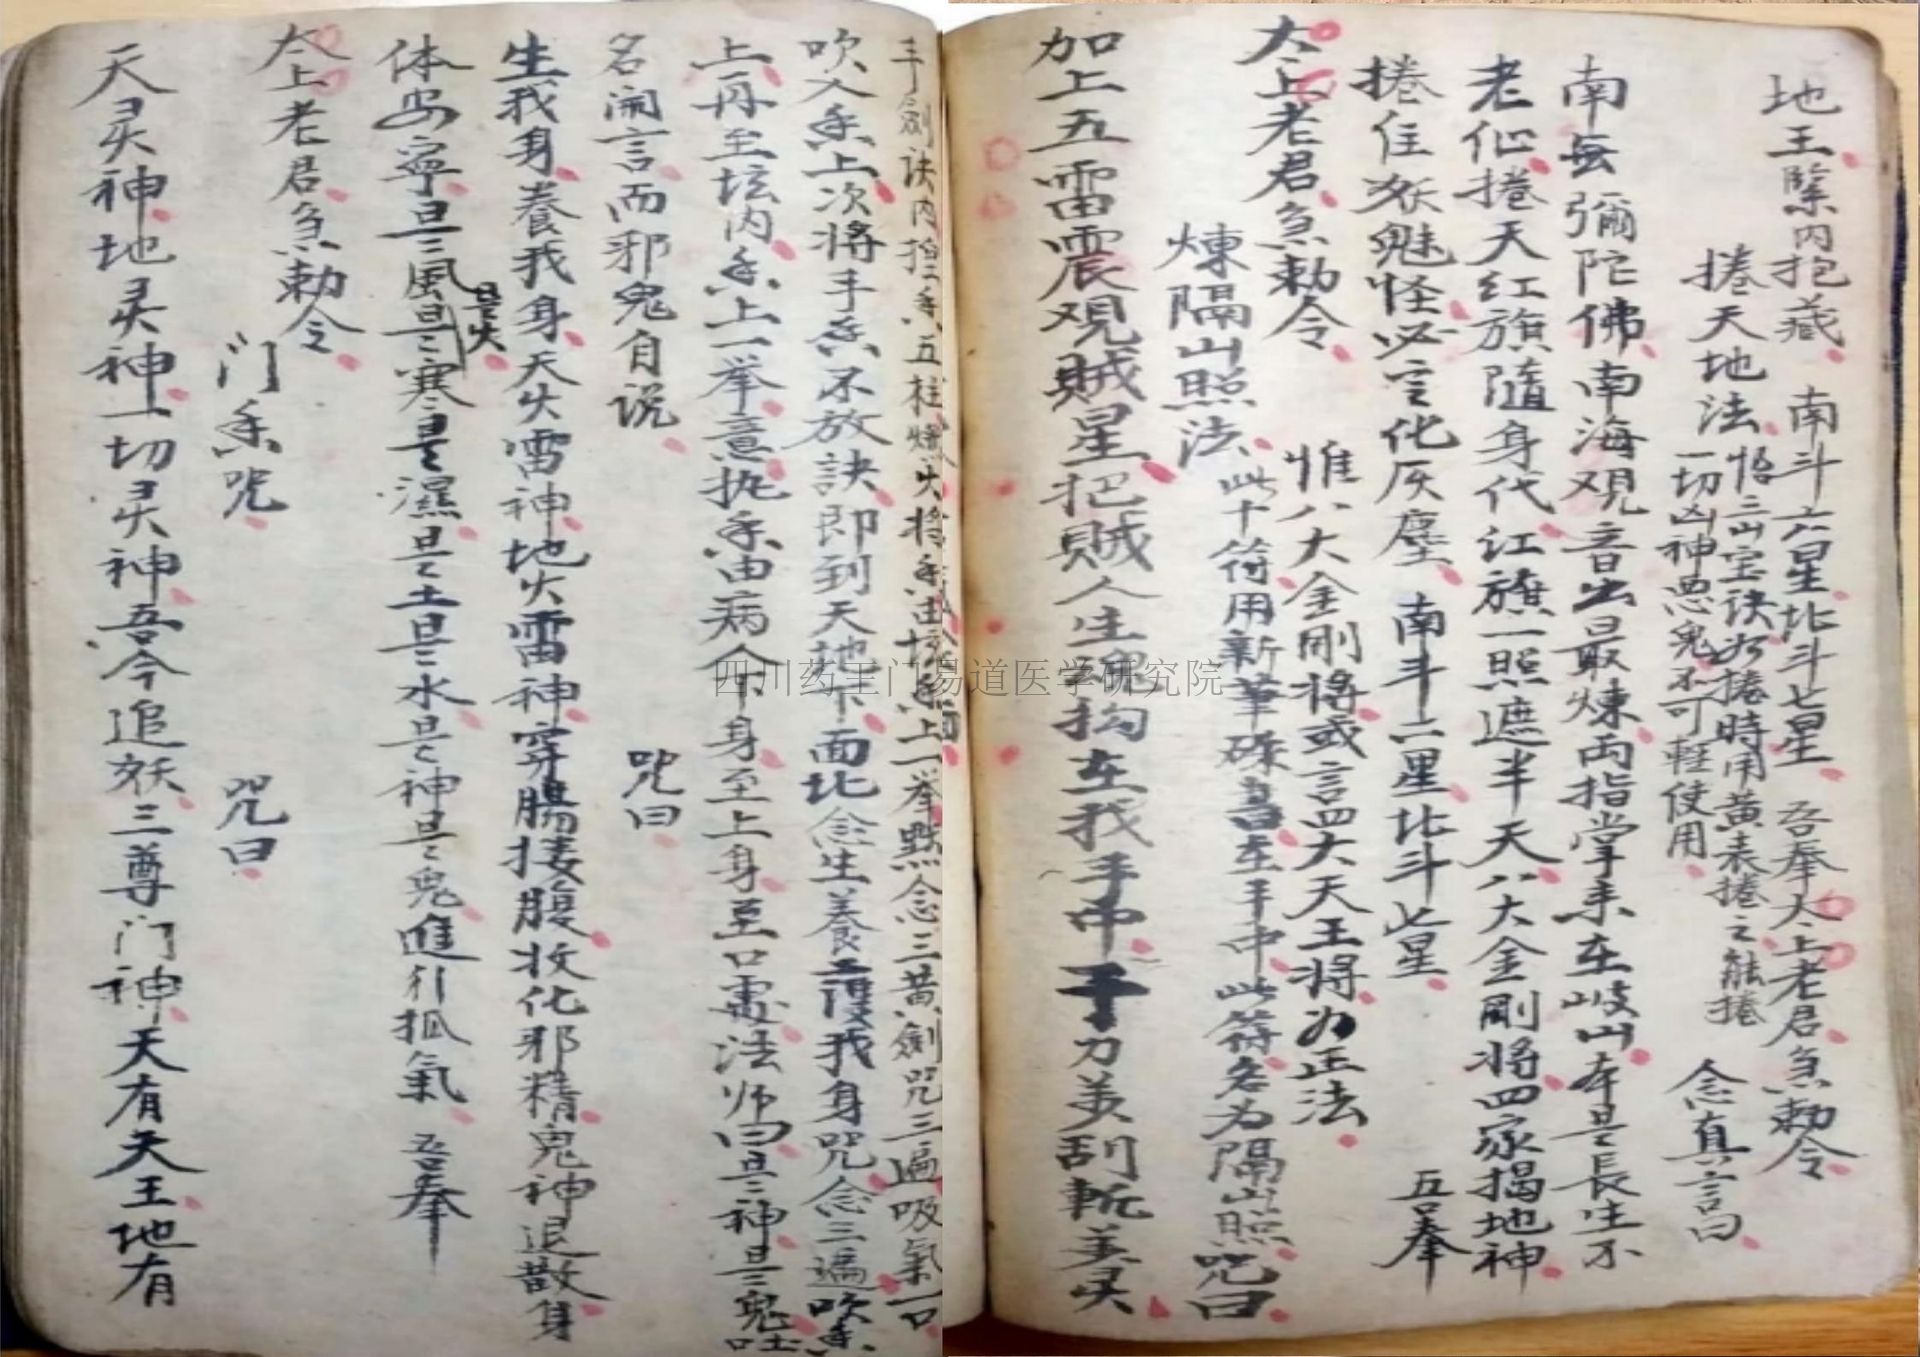 地王緊内抱藏 南斗六星北斗七星 吾奉太上老君急勅令
捲天地法 悟三山宝诀为捲時用黄表捲之能捲
一切凶神恶鬼不可輕使用 念真言曰
南無彌陀佛南海观音出最煉両指掌来在岐山本是長生不
老仙捲天红旗隨身代江旗一照遮半天八大金剛将四家揭地神
捲住妖魁怪必定化灰塵 南斗六星北斗七星 吾奉
太上老君急勅令 惟八大金剛将或言四大天王将为正法
煉隔山照法 此十符用新筆硃書在手中此符名为隔山照咒曰
加上五雷震观賊星把賊人生魂拘在我手中千刀万刮斬万灵
手劍诀内捏香五柱燃火将香由坛香上一举黙念三黄劍咒三遍吸氣一口
吹入香上次将手香不放訣即到天地下面北念生養護我身咒念三遍吹香
上再至坛内香上一举意执香由病人下身至上身至口處法师曰是神是鬼吐
名開言而邪鬼自说 咒曰
生我身養我身天火雷神地火雷神穿腸摟腹收化邪精鬼神退散身
体安寧是風是寒是火是濕是土是水是神是鬼進引抓氣 吾奉
太上老君急勅令
门香咒 咒曰
天灵神地灵神一切灵神吾今追妖三尊门神天有天王地有
四川药王门易道医学研究院